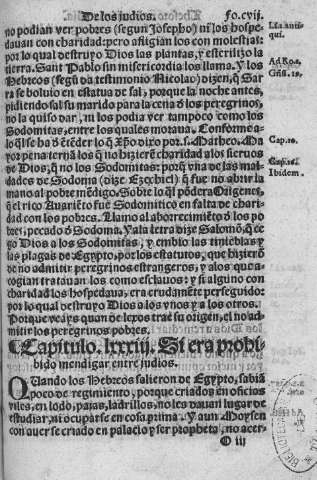 De los judios. Fo.cvij.
no podian ver pobres (segun Josepho) ni los hospe-
dauan con charidad: pero afligian los con molestias:
por lo qual destruyo Dios las plantas, y esterilizo la
tierra. Sant Pablo sin misericordia los llama. Y los
Hebreos (segũ da testimonio Nicolao) dizen, q̃ Sar
ra se boluio en estatua de sal, porque la noche antes,
pidiendo sal su marido para la cena d̓ los peregrinos,
no la quiso dar, ni los podia ver tampoco como los
Sodomitas, entre los quales moraua. Conforme a-
lo q̃l se ha d̓ ẽtẽder lo q̃ Xp̃o dixo por. s. Matheo. Ma
yor pena ternã los q̃ no hizierẽ charidad a los sieruos
de Dios, q̃ no los Sodomitas: porq̃ vna de las mal-
dades de Sodoma (dize Ezechiel) q̃ fue no abrir la
mano al pobre mẽdigo. Sobre lo q̃l põdera Origenes,
q̃ el rico Auariẽto fue Sodomitico en falta de chari-
dad con los pobres. Llamo al aborrecimiẽto d̓ los po
bres, pecado d̓ Sodoma. Y a la letra dize Salomõ, q̃ ce
go Dios a los Sodomitas, y embio las tinieblas y
las plagas de Egypto, por los estatutos, que hiziero͂
de no admitir peregrinos estrangeros, y a los que a-
cogian tratauan los como esclauos: y si alguno con
charidad los hospedaua, era crudamẽte perseguido:
por lo qual destruyo Dios a los vnos y a los otros.
Porque veays quan de lexos trae su origen, el no ad-
mitir los peregrinos pobres.
Capitulo. lxxiij. Si era prohi
bido mendigar entre judios.
QUando los Hebreos salieron de Egypto, sabiã
poco de regimiento, porque criados en oficios
viles, en lodo, pajas, ladrillos, no les dauan lugar de
estudiar, ni ocuparse en cosa prima. Y aun Moysen
con auer se criado en palacio y ser propheta, no acer-
O iij
Li. a anti-
qui.
Ad Ro. 1.
Gñs. 19.
Cap. 10.
Cap. 16.
Ibidem.